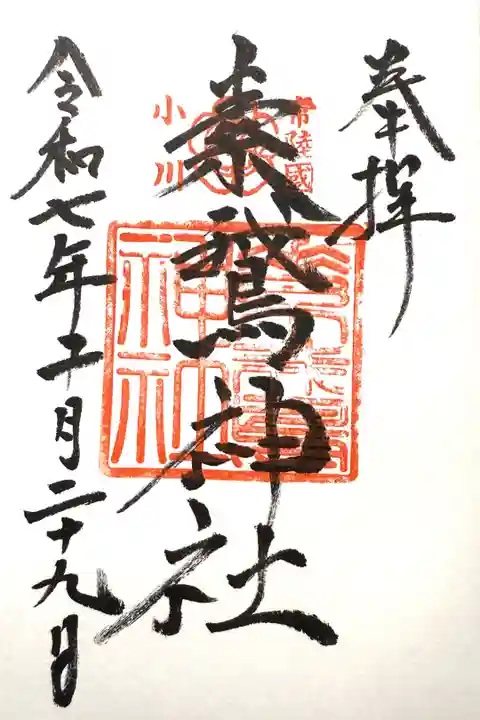 奉拝
常陸國
小川
素鵞神社
神社
令和七年十二月二十九日